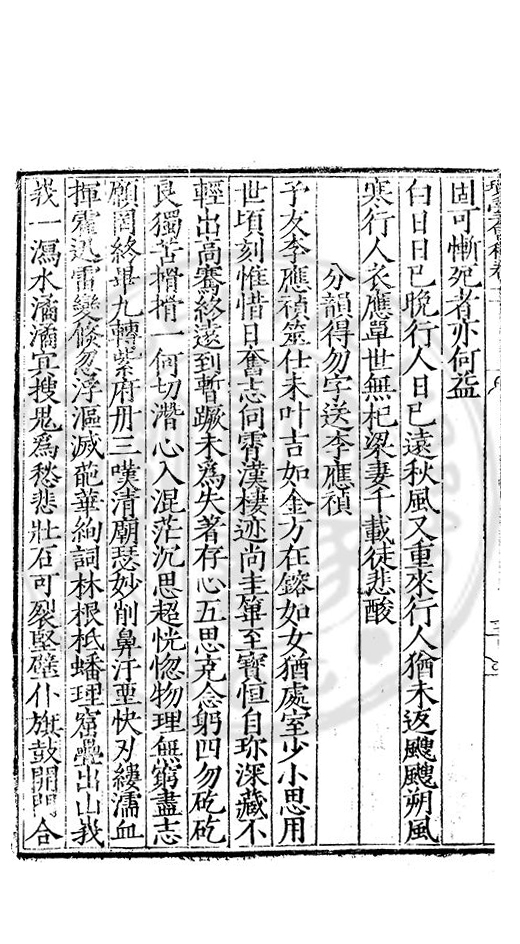 固可慚死者亦何益
白日日已晚行人日已遠秋風又重來行人猶未返颼颼朔風
寒行人衣應單世無杞梁妻千載徒悲酸
分韻得勿字送李應禎
予友李應禎筮仕未叶吉如金方在鎔如女猶處室少小思用
世頃刻惟惜日奮志何霄漢棲迹尚圭篳至寶恒自珎深藏不
輕出高騫終遠到暫蹶未為失著存心五思克念躬四勿矻矻
良獨苦搰搰一何切潛心入混茫沉思超恍惚物理無窮盡志
願固終畢九轉紫府丹三嘆清廟瑟妙削鼻汙堊快刃縷濡血
揮霍迅雷變倏忽浮漚滅葩華絢詞林根柢蟠理窟疊出山峩
峩一瀉水潏潏宜搜鬼為愁悲壯石可裂堅壁仆旗鼓開門合